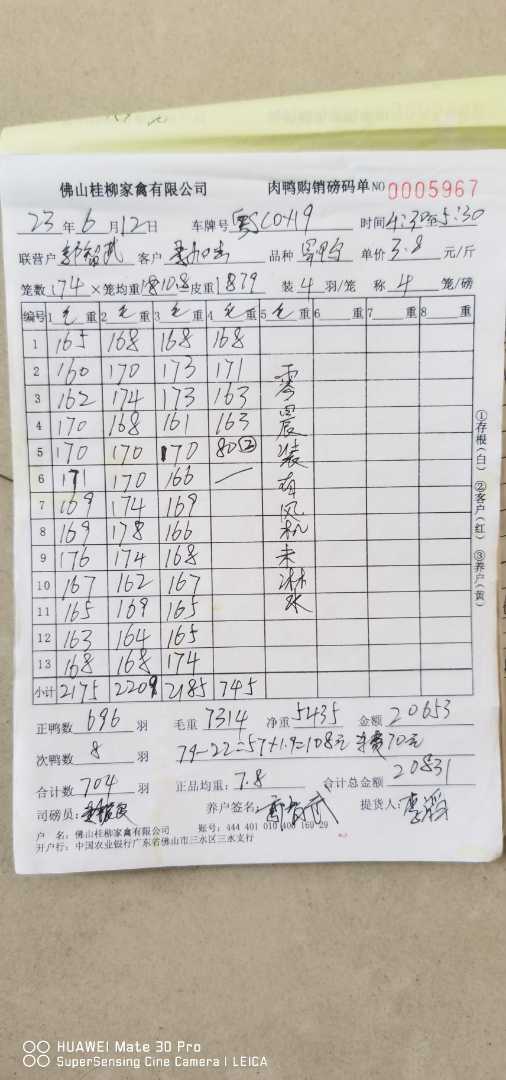 佛山桂柳家禽有限公司 肉鸭购销磅码单 NO 0005967
23年6月12日 车牌号 粤 时间4:30至5:30
联营户 客户 品种 单价3.8元/斤
笼数174×笼均重10.8=皮重1879 装4羽/笼 称4笼/磅
编号 1毛重 2毛重 3毛重 4毛重 5毛重 6 重 7 重 8 重
1 165 168 168 168
2 160 170 173 171
3 162 174 173 163
4 170 168 161 163
5 170 170 170 80②
6 171 170 166 —
7 169 174 169
8 169 178 166
9 176 174 168
10 167 162 167
11 165 169 165
12 163 164 165
13 168 168 174
小计 2175 2209 2185 745
零晨装有风机未淋水
①存根(白) ②客户(红) ③养户(黄)
正鸭数696羽 毛重7314 净重5435 金额20653
次鸭数8羽 79-22=57×1.9=108元 杂费70元
合计数704羽 正品均重:7.8 合计总金额20831
司磅员: 养户签名: 提货人:
户 名:佛山桂柳家禽有限公司 账号:444 401 010 400 169 29
开户行:中国农业银行广东省佛山市三水区三水支行
HUAWEI Mate 30 Pro
SuperSensing Cine Camera | LEICA